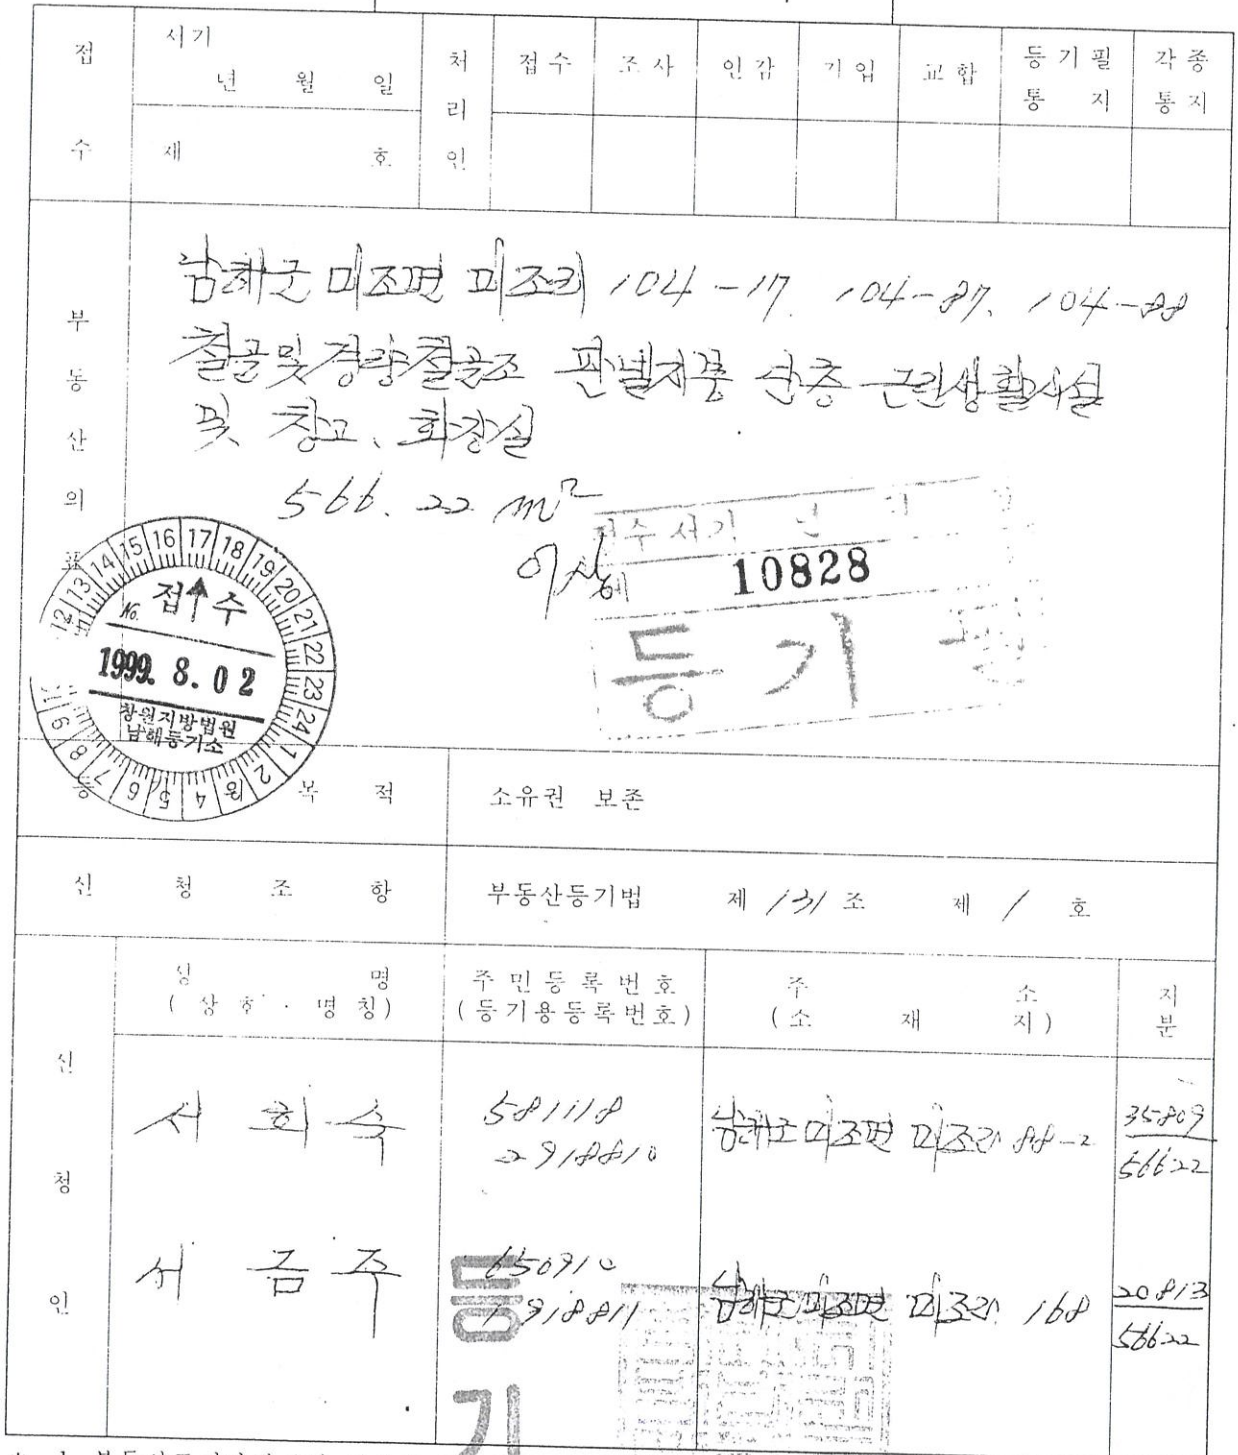 접 수
서기
년 월 일
제 호
처리인
접수 조사 인감 기입 교합 등기필 통지 각종 통지
부동산의 표
남해군 미조면 미조리 104-17. 104-87. 104-88
철골및 경량철골조 판넬지붕 단층 근린생활시설
및 창고、화장실
566.22 m²
이상
접수 서기 년
제 10828
등기
12 13 14 15 16 17 18 19 20 21 22 23 24 1 2 3 4 5 6 7 8 9
No. 접수
1999. 8. 02
창원지방법원
남해등기소
등 목 적 소유권 보존
신 청 조 항 부동산등기법 제 131 조 제 1 호
신청인
성 명
(상호·명칭)
주민등록번호
(등기용등록번호)
주 소
(소 재 지)
지분
서 희 숙
581118
2918810
남해군 미조면 미조리 88-2
35809
56622
서 금 주
650910
1918811
남해군 미조면 미조리 168
20813
56622
등기